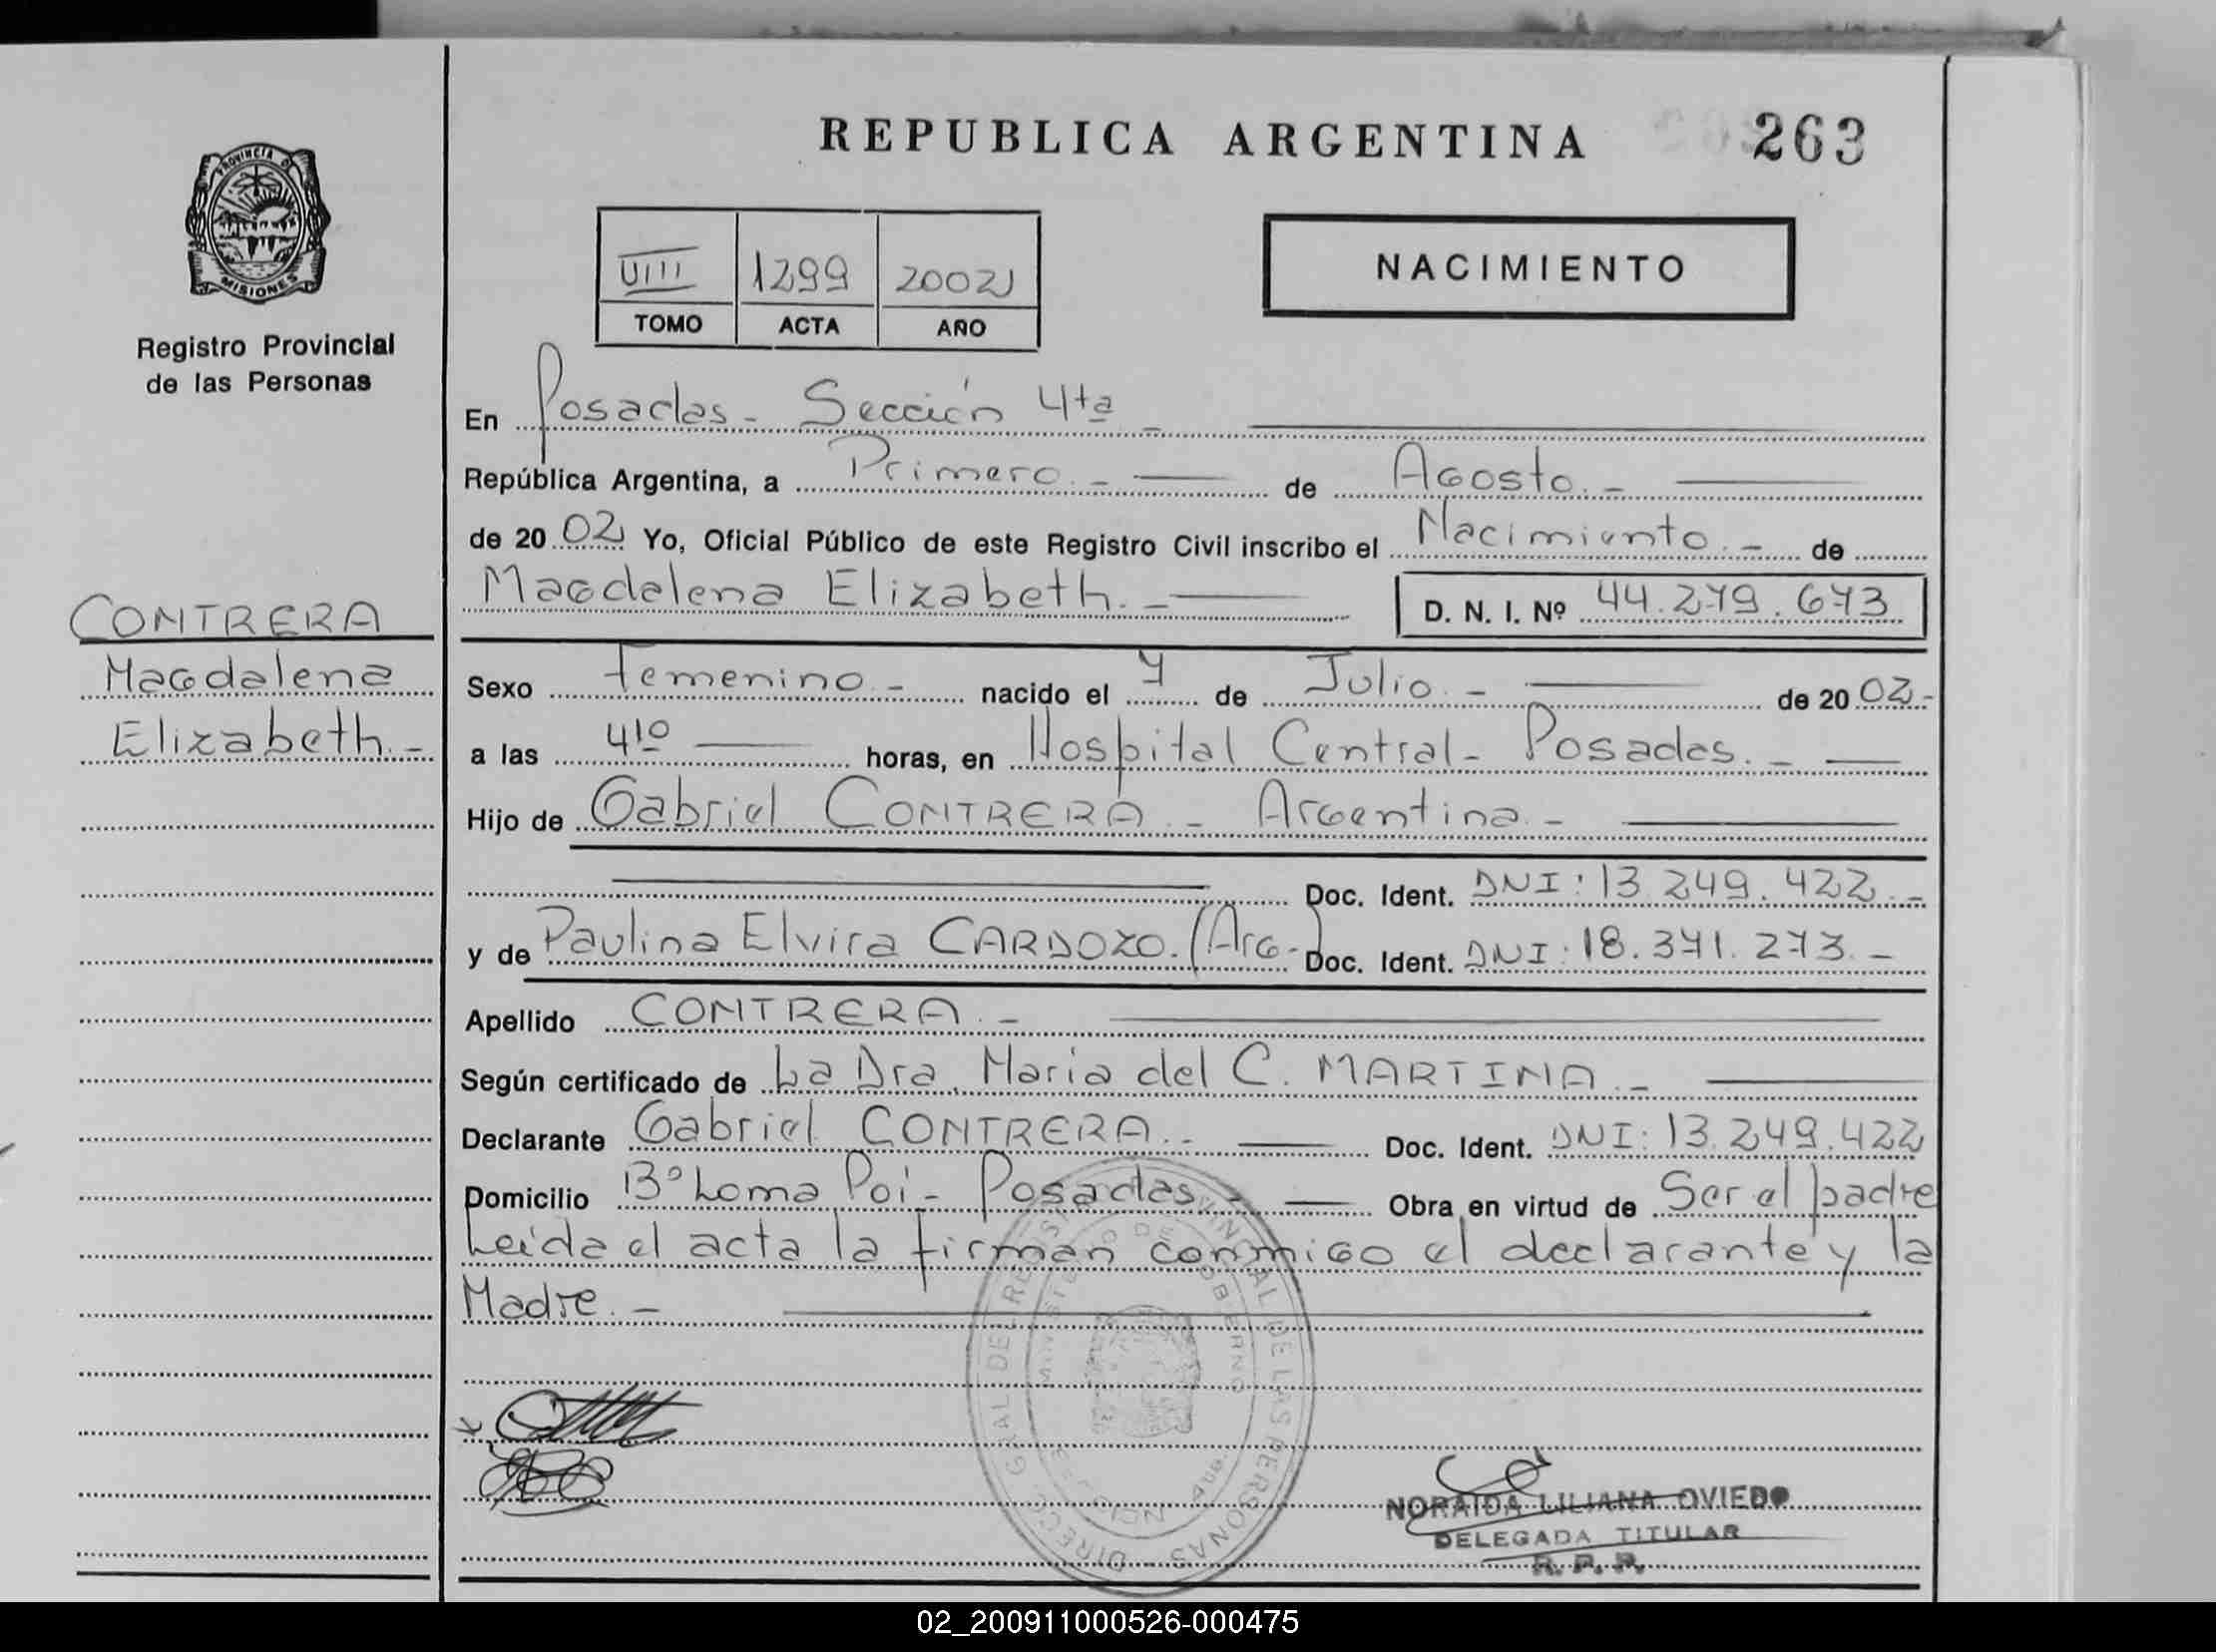 REPUBLICA ARGENTINA
263
PROVINCIA D
MISIONES
Registro Provincial
de las Personas
VIII 1299 2002
TOMO ACTA AÑO
NACIMIENTO
En Posadas - Sección 4ta -
República Argentina, a Primero. - de Agosto. -
de 20 02 Yo, Oficial Público de este Registro Civil inscribo el Nacimiento. - de
Magdalena Elizabeth. - D. N. I. Nº 44.279.673
CONTRERA
Magdalena
Elizabeth. -
Sexo Femenino - nacido el 7 de Julio. - de 20 02.-
a las 410 horas, en Hospital Central - Posadas. -
Hijo de Gabriel CONTRERA - Argentina. -
Doc. Ident. DNI: 13.249.422. -
y de Paulina Elvira CARDOZO. (Arg.) Doc. Ident. DNI: 18.371.273. -
Apellido CONTRERA. -
Según certificado de La Dra. Maria del C. MARTINA. -
Declarante Gabriel CONTRERA. - Doc. Ident. DNI: 13.249.422
Domicilio Bº Loma Poi - Posadas - Obra en virtud de Ser el padre
Leida el acta la firman conmigo el declarante y la
Madre. -
DIRECC. GRAL DEL REGIST VINCIAL DE LAS PERSONAS
MINISTERIO DE GOBIERNO
NORAIDA LILIANA OVIEDO
DELEGADA TITULAR
R. P. P.
02_200911000526-000475